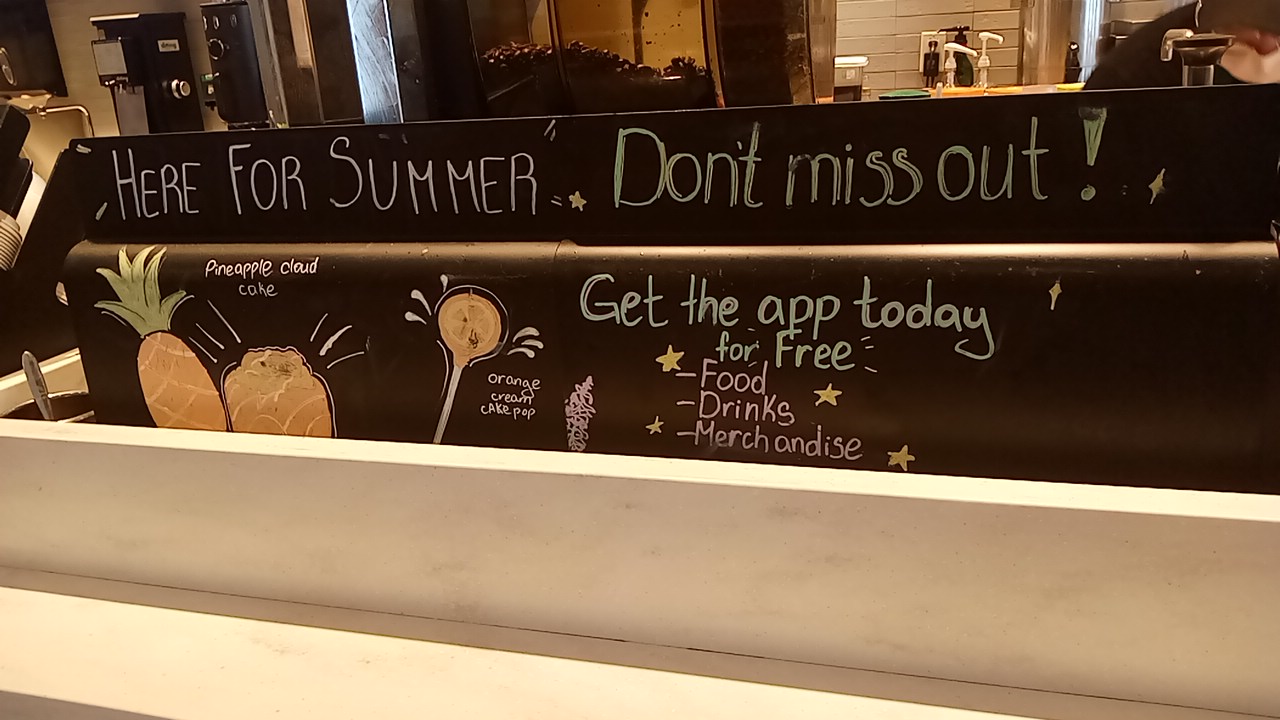 HERE FOR SUMMER
Don't miss out!
Pineapple cloud
cake
orange
cream
cakepop
Get the app today
for Free
- Food
- Drinks
- Merchandise